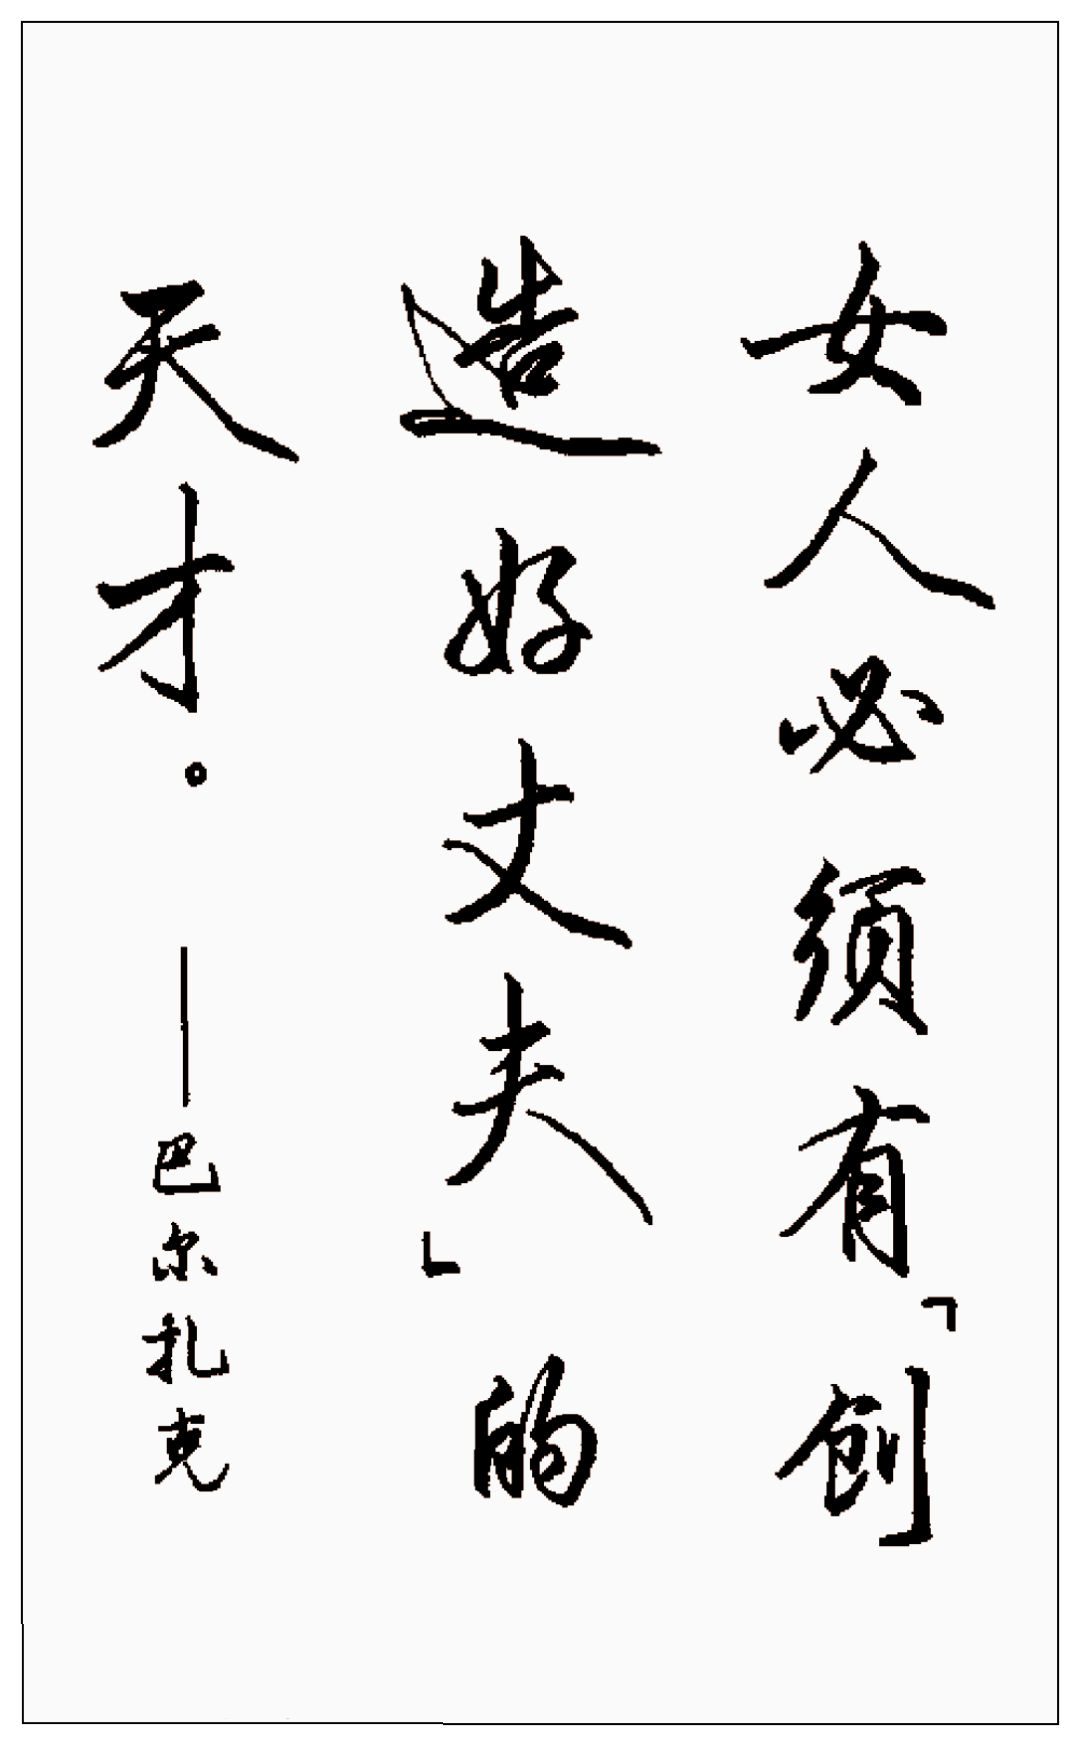 女人必须有「创
造好丈夫」的
天才。——巴尔扎克